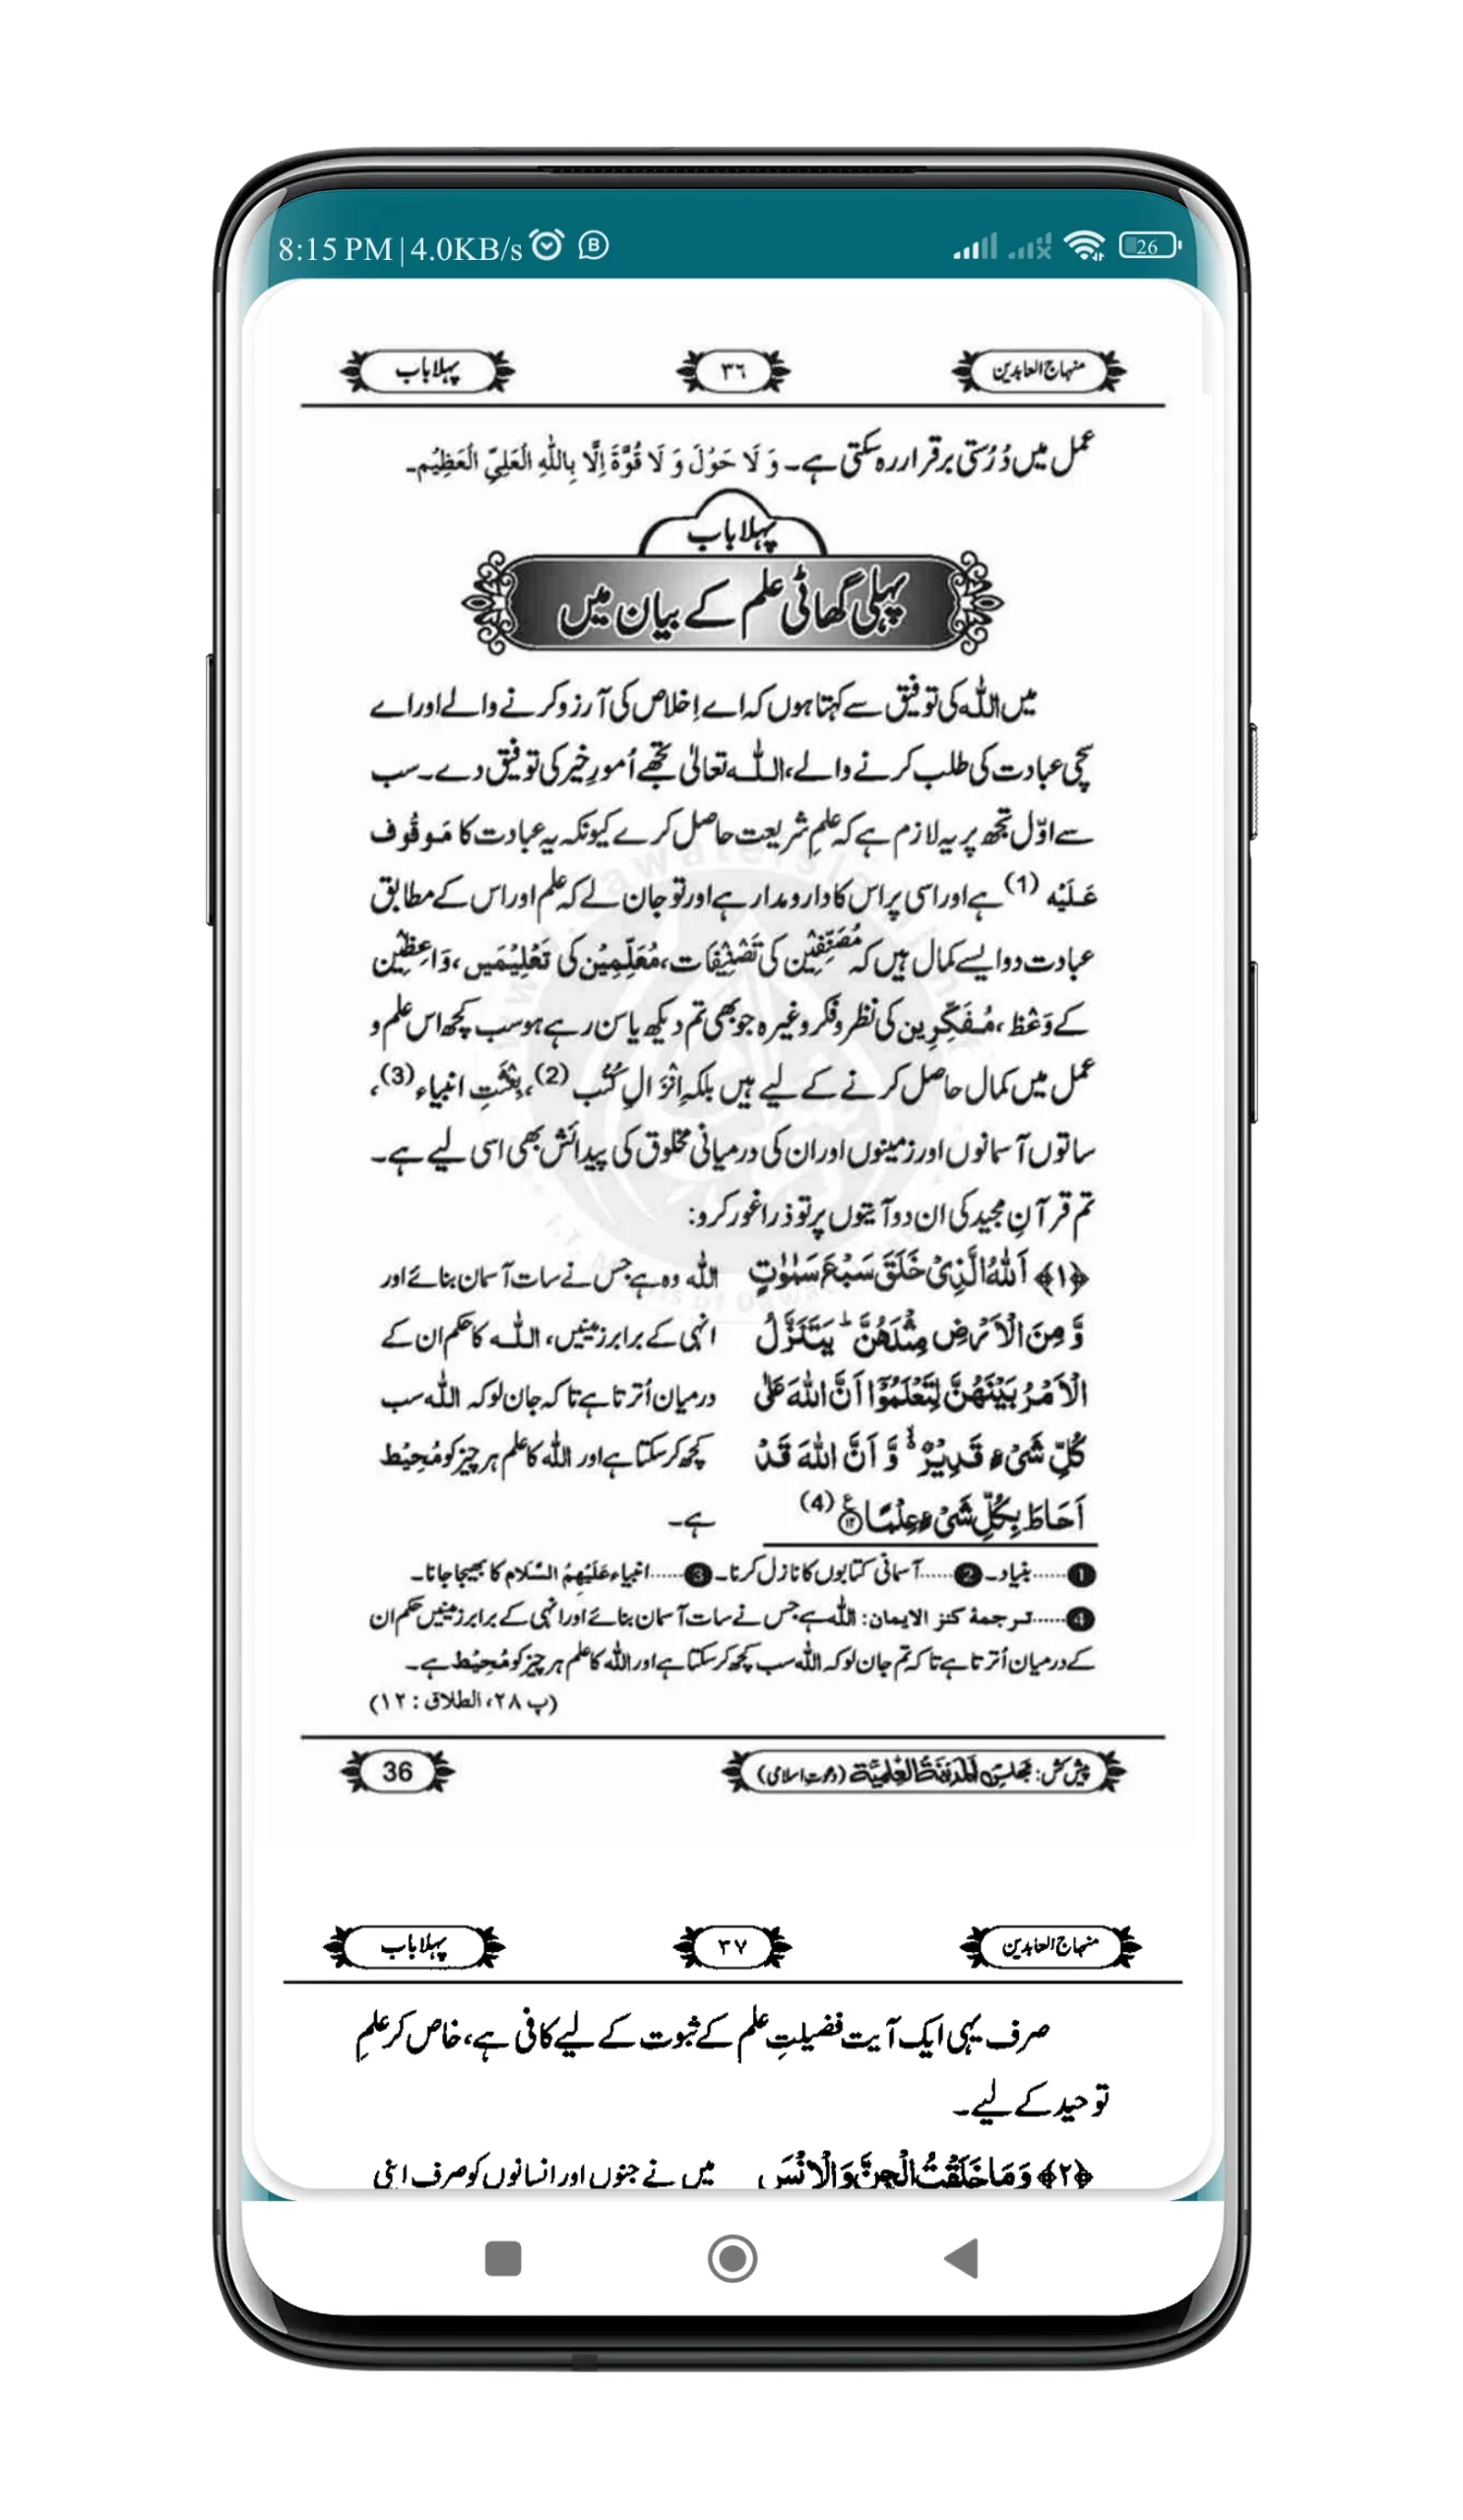 8:15 PM | 4.0KB/s B 26
منہاج العابدین ٣٦ پہلا باب
عمل میں دُرُستی برقرار رہ سکتی ہے۔ وَ لَا حَوْلَ وَ لَا قُوَّةَ اِلَّا بِاللّٰهِ الْعَلِيِّ الْعَظِيْم۔
پہلا باب
پہلی گھاٹی علم کے بیان میں
میں اللّٰہ کی توفیق سے کہتا ہوں کہ اے اِخلاص کی آرزو کرنے والے اور اے
سچی عبادت کی طلب کرنے والے، اللّٰہ تعالیٰ تجھے اُمورِ خیر کی توفیق دے۔ سب
سے اوّل تجھ پر یہ لازم ہے کہ علمِ شریعت حاصل کرے کیونکہ یہ عبادت کا مَوقُوف
عَلَیْہ (1) ہے اور اسی پر اس کا دارومدار ہے اور تو جان لے کہ علم اور اس کے مطابق
عبادت دو ایسے کمال ہیں کہ مُصَنِّفِیْن کی تَصْنِیْفَات، مُعَلِّمِیْن کی تَعْلِیْمَیں، وَاعِظِیْن
کے وَعْظ، مُفَکِّرِین کی نظر و فکر وغیرہ جو بھی تم دیکھ یا سن رہے ہو سب کچھ اس علم و
عمل میں کمال حاصل کرنے کے لیے ہیں بلکہ اِنْزَالِ کُتُب (2)، بِعْثَتِ انبیاء (3)،
ساتوں آسمانوں اور زمینوں اور ان کی درمیانی مخلوق کی پیدائش بھی اسی لیے ہے۔
تم قرآنِ مجید کی ان دو آیتوں پر تو ذرا غور کرو:
﴿١﴾ اَللّٰهُ الَّذِیْ خَلَقَ سَبْعَ سَمٰوٰتٍ اللّٰہ وہ ہے جس نے سات آسمان بنائے اور
وَّ مِنَ الْاَرْضِ مِثْلَهُنَّ ؕ یَتَنَزَّلُ انہی کے برابر زمینیں، اللّٰہ کا حکم ان کے
الْاَمْرُ بَیْنَهُنَّ لِتَعْلَمُوْۤا اَنَّ اللّٰهَ عَلٰى درمیان اُترتا ہے تا کہ جان لو کہ اللّٰہ سب
كُلِّ شَیْءٍ قَدِیْرٌ ۙ۬ وَّ اَنَّ اللّٰهَ قَدْ کچھ کر سکتا ہے اور اللّٰہ کا علم ہر چیز کو مُحِیْط
اَحَاطَ بِكُلِّ شَیْءٍ عِلْمًا۠ ۝١٢ (4) ہے۔
1......بنیاد۔ 2......آسمانی کتابوں کا نازل کرنا۔ 3......انبیاء عَلَیْهِمُ السَّلَام کا بھیجا جانا۔
4......ترجمۂ کنز الایمان: اللّٰہ ہے جس نے سات آسمان بنائے اور انہی کے برابر زمینیں حکم ان
کے درمیان اُترتا ہے تا کہ تم جان لو کہ اللّٰہ سب کچھ کر سکتا ہے اور اللّٰہ کا علم ہر چیز کو مُحِیْط ہے۔
(پ ٢٨، الطلاق: ١٢)
پیش کش: مجلس المدینۃ العلمیۃ (دعوتِ اسلامی) 36
منہاج العابدین ٣٧ پہلا باب
صرف یہی ایک آیت فضیلتِ علم کے ثبوت کے لیے کافی ہے، خاص کر علمِ
توحید کے لیے۔
﴿٢﴾ وَ مَا خَلَقْتُ الْجِنَّ وَ الْاِنْسَ میں نے جنوں اور انسانوں کو صرف اپنی